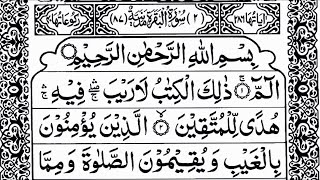 اٰیَاتُهَا ٢٨٦ (٢) سُوْرَةُ الْبَقَرَةِ مَدَنِیَّةٌ (٨٧) رُكُوْعَاتُهَا
بِسْمِ اللّٰهِ الرَّحْمٰنِ الرَّحِیْمِ
الٓمّٓ ۚ ﴿١﴾ ذٰلِكَ الْكِتٰبُ لَا رَیْبَ ۛۖ فِیْهِ ۛۚ
هُدًی لِّلْمُتَّقِیْنَ ﴿٢﴾ الَّذِیْنَ یُؤْمِنُوْنَ
بِالْغَیْبِ وَ یُقِیْمُوْنَ الصَّلٰوةَ وَ مِمَّا